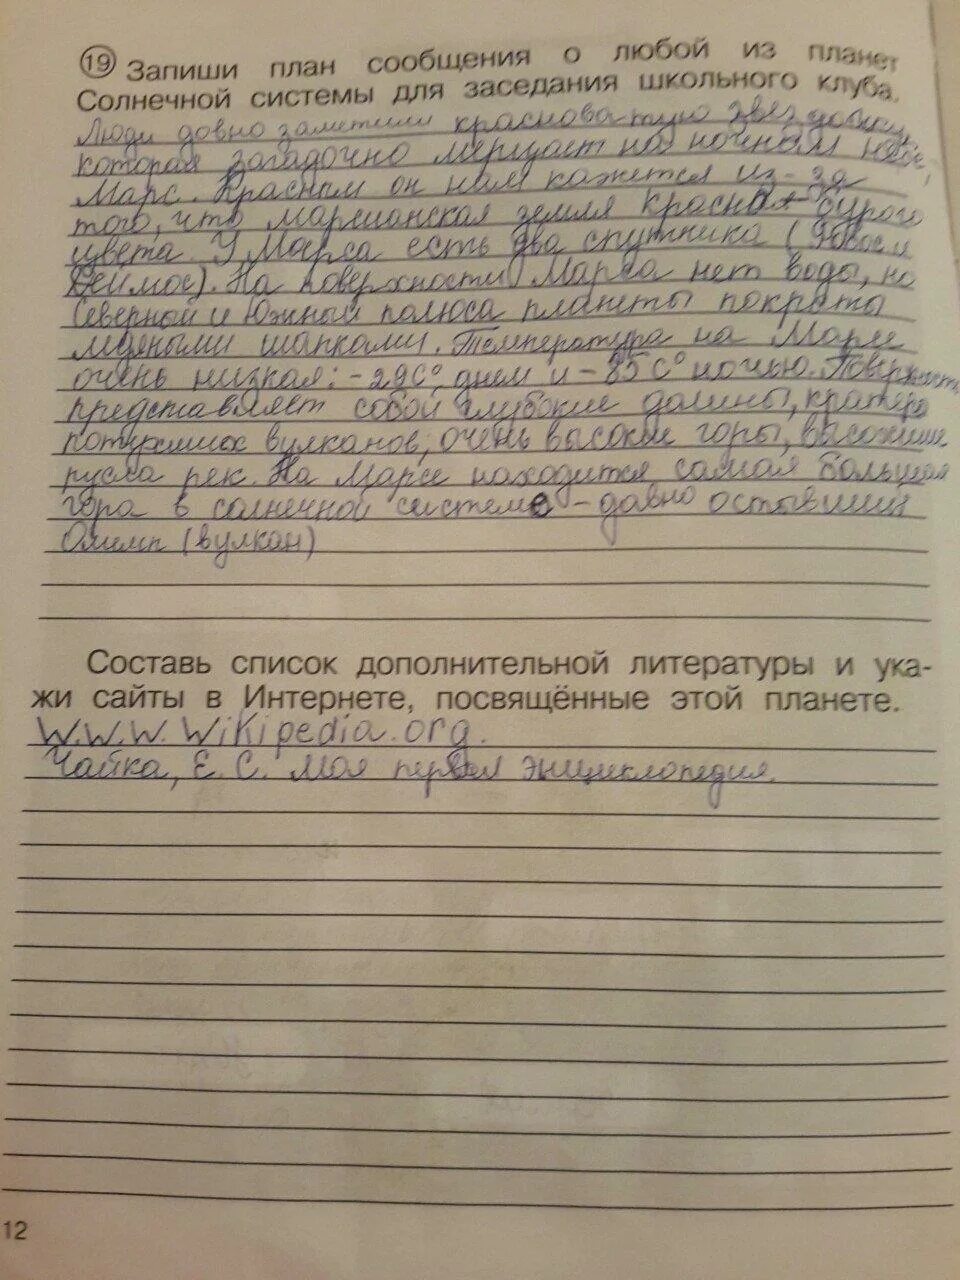 19 Запиши план сообщения о любой из планет
Солнечной системы для заседания школьного клуба.
Люди довно заметили красноватую звездочку,
которая загадочно мерцает на ночном небе,
Марс. Красным он нам кажется из-за
того, что марсианская земля красно-бурого
цвета. У Марса есть два спутника (Фобос и
Деймос). На поверхности Марса нет воды, но
Северной и Южный полюса планеты покрыты
ледяными шапками. Температура на Марсе
очень низкая: -29С° днем и -85С° ночью. Поверхность
представляет собой глубокие долины, кратера
потухших вулканов, очень высокие горы, высохшие
русла рек. На Марсе находится самая большая
гора в солнечной системе - давно остывший
Олимп (вулкан)
Составь список дополнительной литературы и ука-
жи сайты в Интернете, посвящённые этой планете.
W.W.W. Wikipedia.org.
Чайка, Е. С. Моя первая энциклопедия.
12